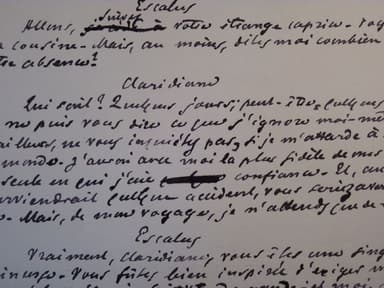 Escalus
Allons, suivez votre étrange caprice. Voy
cousine. Mais, au moins, dites moi combien
tre absence?
Claridiane
Qui sait? Quelques jours; peut-être quelques
ne puis vous dire ce que j'ignore moi-mê
ailleurs, ne vous inquiétez pas, si je m'attarde à
monde. J'aurai avec moi la plus fidèle de mes
seule en qui j'aie confiance. Et, au
urviendrait quelque accident, vous
Mais, de mon voyage, je n'attends que de
Escalus
Vraiment, Claridiane, vous êtes une sing
Vous fûtes bien inspirée d'exiger